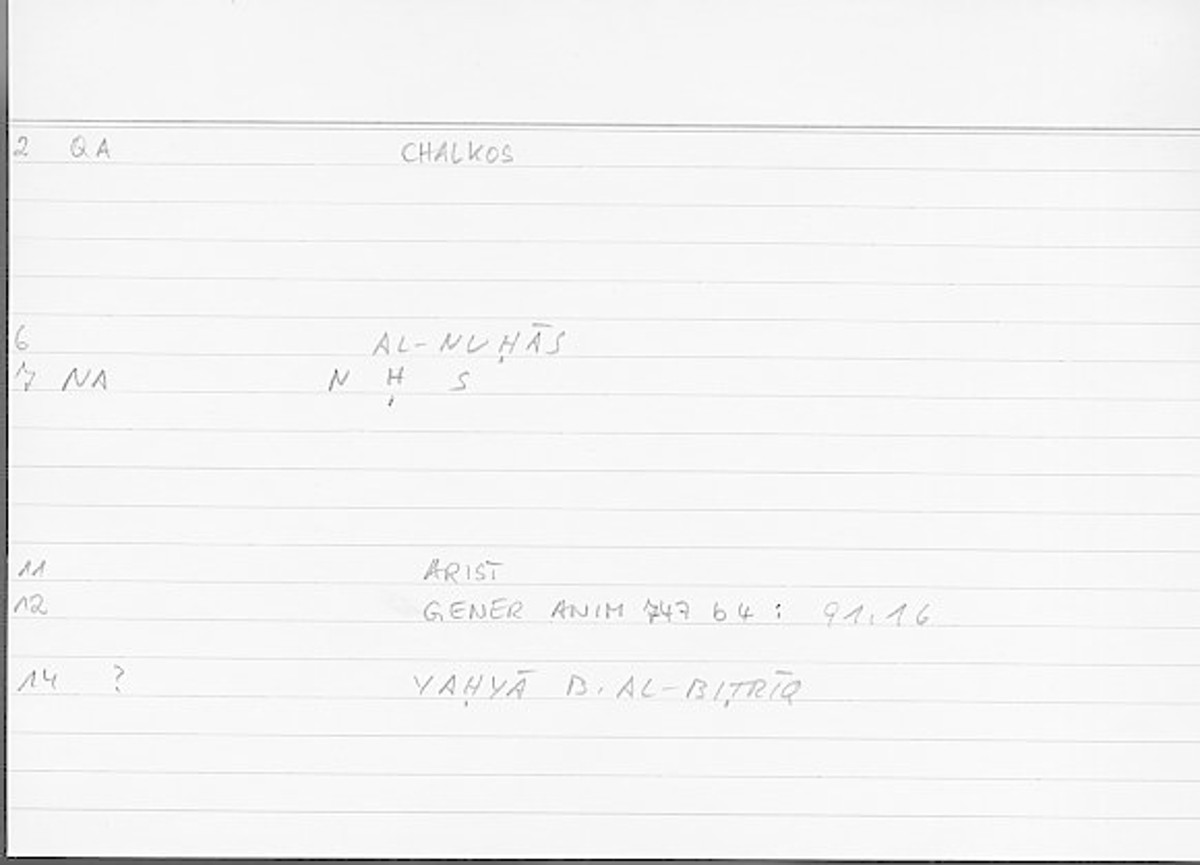 2 QA CHALKOS
6 AL-NUḤĀS
7 NA N Ḥ S
11 ARIST
12 GENER ANIM 747 b 4 : 91.16
14 ? YAḤYĀ B. AL-BIṬRĪQ